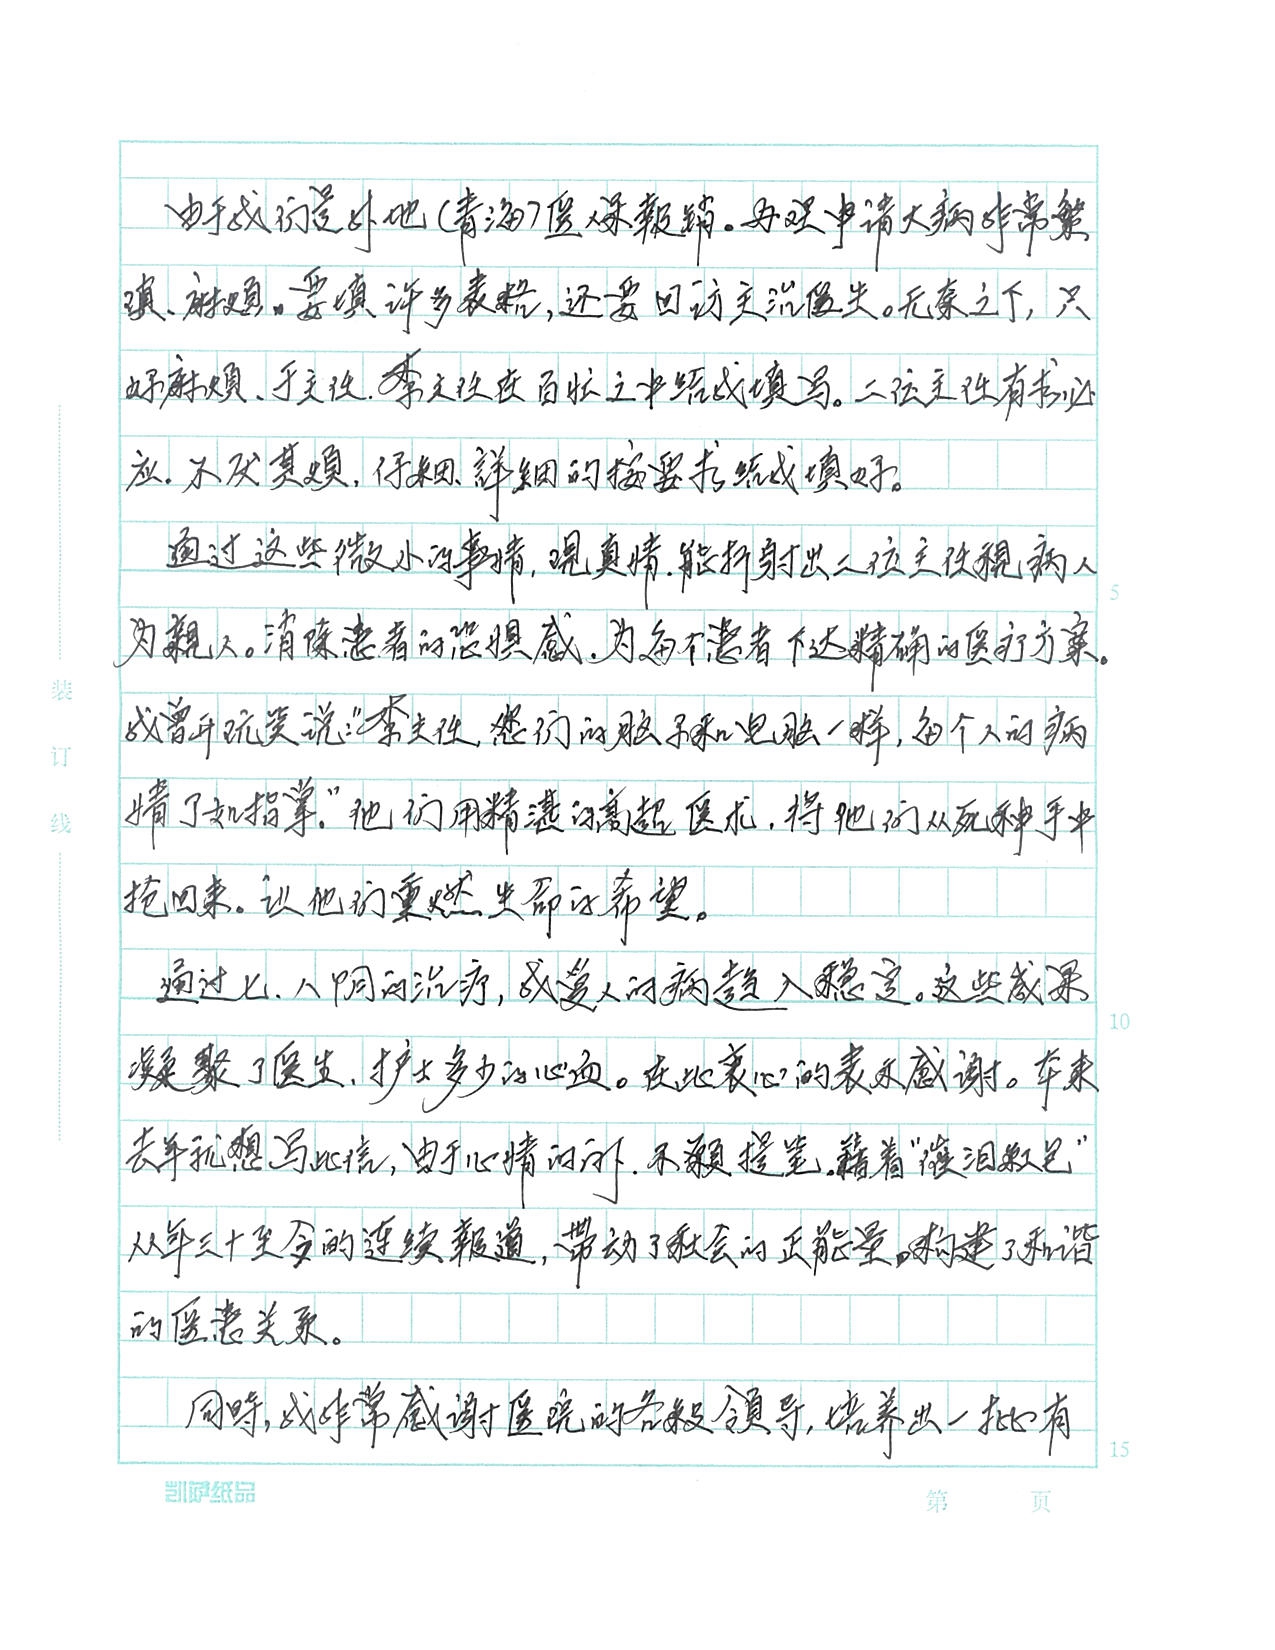 由于我们是外地(青海)医保報銷。办理申请大病非常繁
琐、麻烦。要填许多表格,还要回访主治医生。无奈之下,只
好麻烦、于主任.李主任在百忙之中给我填写。二位主任有求必
应.不厌其烦,仔细、詳細的按要求给我填好。
通过这些微小的事情,現真情.能折射出二位主任視病人
为親人。消除患者的恐惧感.为每个患者下达精确的医疗方案。
我曾开玩笑说:"李主任,您们的脑子和电脑一样,每个人的病
情了如指掌."他们用精湛的高超医术.将他们从死神手中
抢回来。让他们重燃生命的希望。
通过七、八年间的治疗,我爱人的病趋入稳定。这些成果
凝聚了医生、护士多少的心血。在此衷心的表示感谢。本来
去年就想写此信,由于心情的 .不願提笔.藉着"催泪紅包"
从年三十至今的连续報道,带动了社会的正能量.构建了和谐
的医患关系。
同時,我非常感謝医院的各级領导,培养出一批有
装
订
线
5
10
15
凯萨纸品
第 页